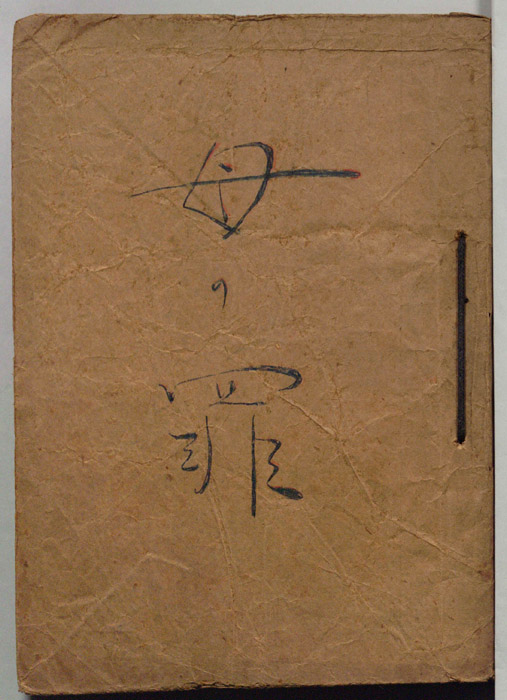 母の罪